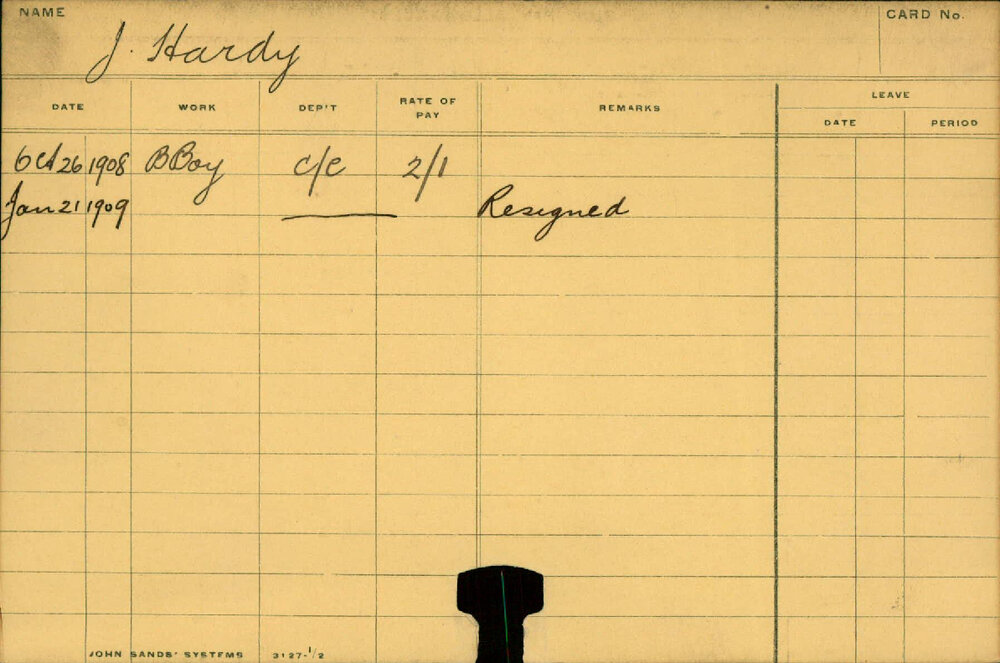 NAME
J. Hardy
CARD No.
DATE WORK DEP'T RATE OF PAY REMARKS LEAVE
DATE PERIOD
Oct 26 1908 BBoy C/C 2/1
Jan 21 1909 Resigned
JOHN SANDS' SYSTEMS 3127-1/2